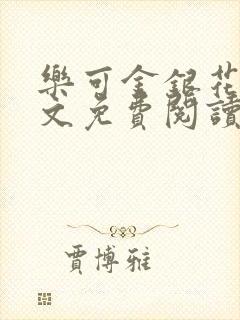 樂可金銀花
文免費閱讀
賈博雅